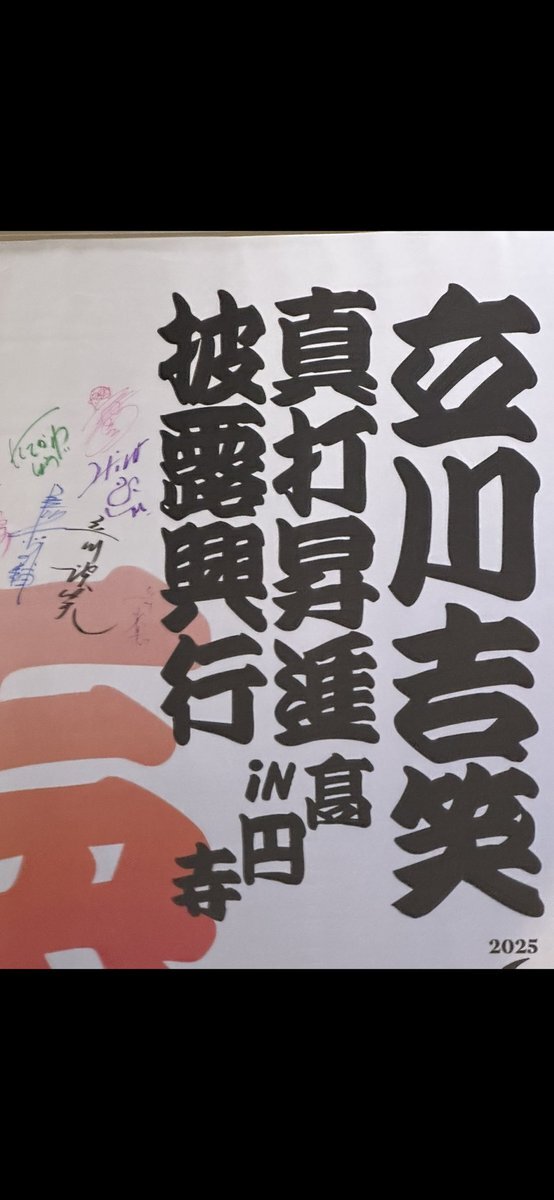 立川吉笑
真打昇進
披露興行
iN高円寺
2025